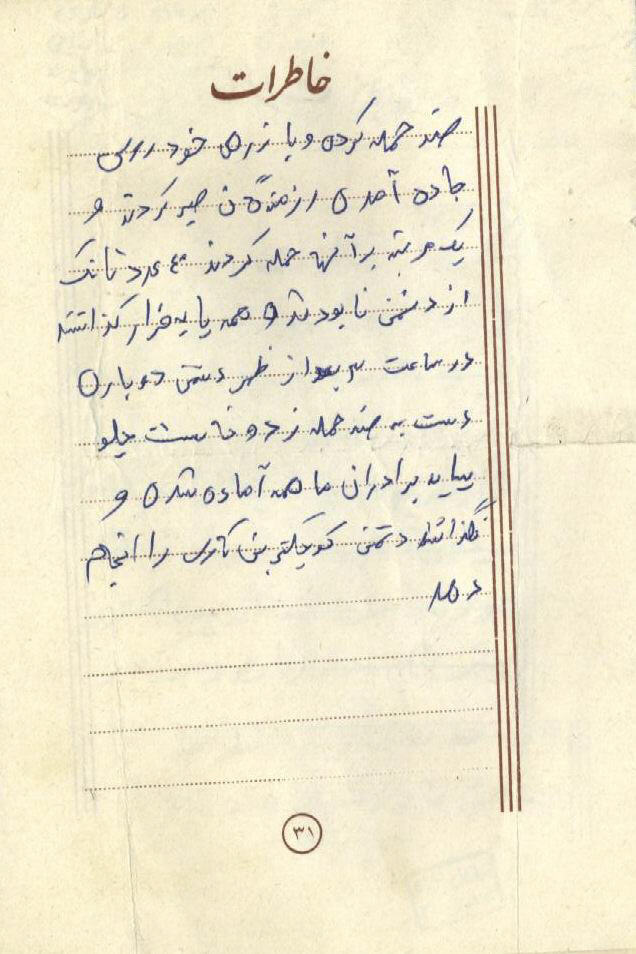 خاطرات
ضد حمله کرده و با زره خود روی
جاده آمدن رزمندگان صبر کردند و
یک مرتبه بر آنها حمله کردند ۴۰ عدد تانک
از دشمن نابود شد و همه پا به فرار گذاشتند
در ساعت ۳ بعد از ظهر دشمن دوباره
دست به ضد حمله زد و خاست جلو
بیاید برادران ما همه آماده شده و
نگذاشتند دشمن کوچکترین کاری را انجام
دهد
۳۱